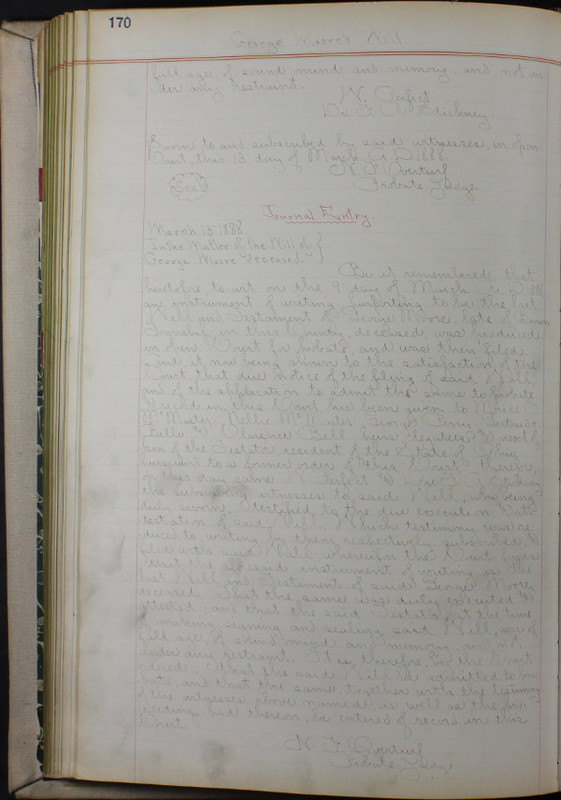 170
George Moore's Will
full age, of sound mind and memory, and not un
der any restraint.
W. Perfect
Dr. F. A. Stickney
Sworn to and subscribed by said witnesses in Open
Court, this 13 day of March A. D. 1888
N. F. Overturf
Seal
Probate Judge.
Journal Entry
March 13 1888
In the Matter of the Will of
George Moore deceased.
Be it remembered that
heretofore to wit on the 9 day of March A. D. 1888
an instrument of writing purporting to be the last
Will and Testament of George Moore late of
Township in this County, deceased was produced
in Open Court for probate, and was then filed
and it now being shown to the satisfaction of the
Court that due notice of the filing of said Will
and of the application to admit the same to probate
& record in this Court has been given to
McMaster, Nellie McMaster George Perry Gertrude
Belle & Clarence Bell heirs legatees & next of
of the Testator resident of the State of Ohio
pursuant to a former order of this Court therefore
on this day came Perfect & Dr. F. A. Stickney
the subscribing witnesses to said Will, who being
duly sworn, testified to the due execution & at
testation of said Will. Which testimony was re
duced to writing & by them respectively subscribed &
filed with said Will whereupon the Court finds
that the aforesaid instrument of writing is the
last Will and Testament of said George Moore,
deceased. That the same was duly executed &
attested; and that the said Testator at the time
of making, signing and sealing said Will, was of
full age, of sound mind and memory and not
under any restraint. It is, therefore, by the Court
ordered that the said Will be admitted to pro
bate and that the same, together with the testimony
of the witnesses above named as well as the pro
ceedings had thereon, be entered of record in this
Court.
N. F. Overturf
Probate Judge